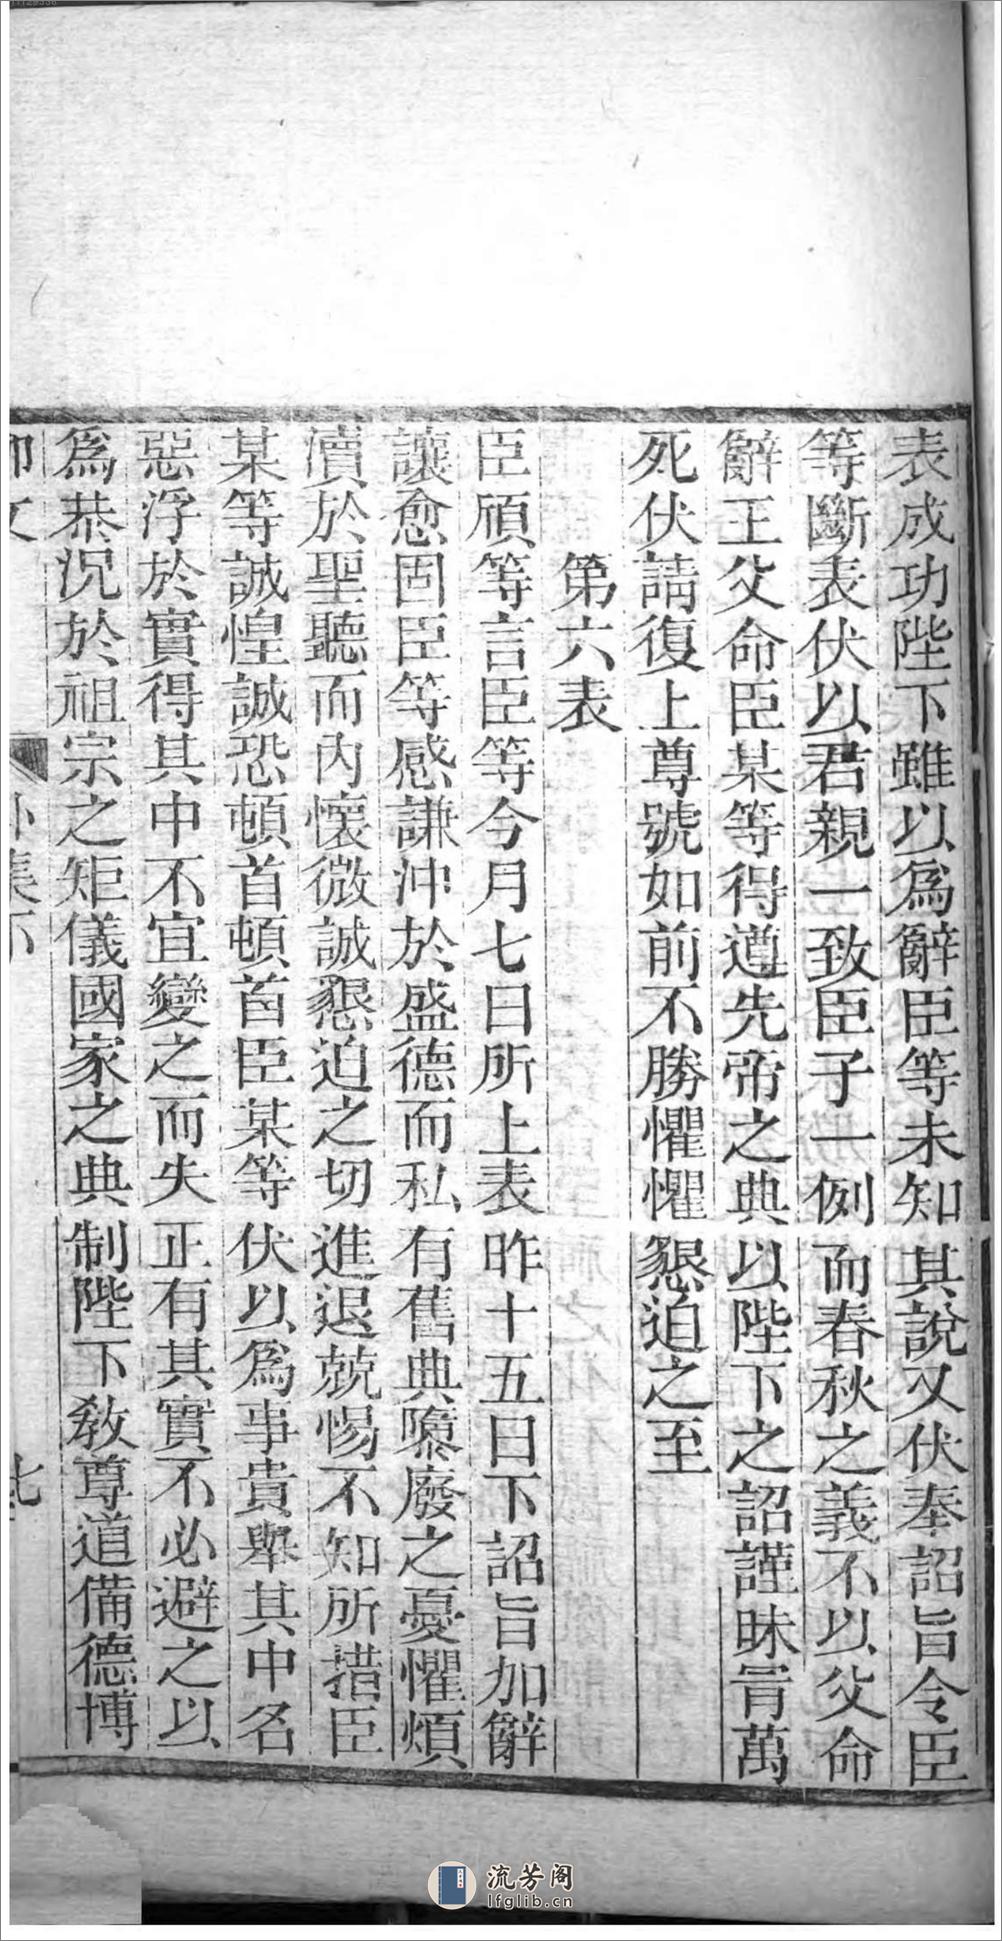 表成功陛下雖以爲辭臣等未知其說又伏奉詔旨令臣
等斷表伏以君親一致臣子一例而春秋之義不以父命
辭王父命臣某等得遵先帝之典以陛下之詔謹昧冐萬
死伏請復上尊號如前不勝懼懼懇迫之至
第六表
臣頎等言臣等今月七日所上表昨十五日下詔旨加辭
讓愈固臣等感謙沖於盛德而私有舊典隳廢之憂懼煩
瀆於聖聽而內懷微誠懇迫之切進退兢惕不知所措臣
某等誠惶誠恐頓首頓首臣某等伏以爲事貴舉其中名
惡浮於實得其中不宜變之而失正有其實不必避之以
爲恭況於祖宗之矩儀國家之典制陛下敎尊道備德博
柳文 外集下 七
流芳阁
lfglib.cn